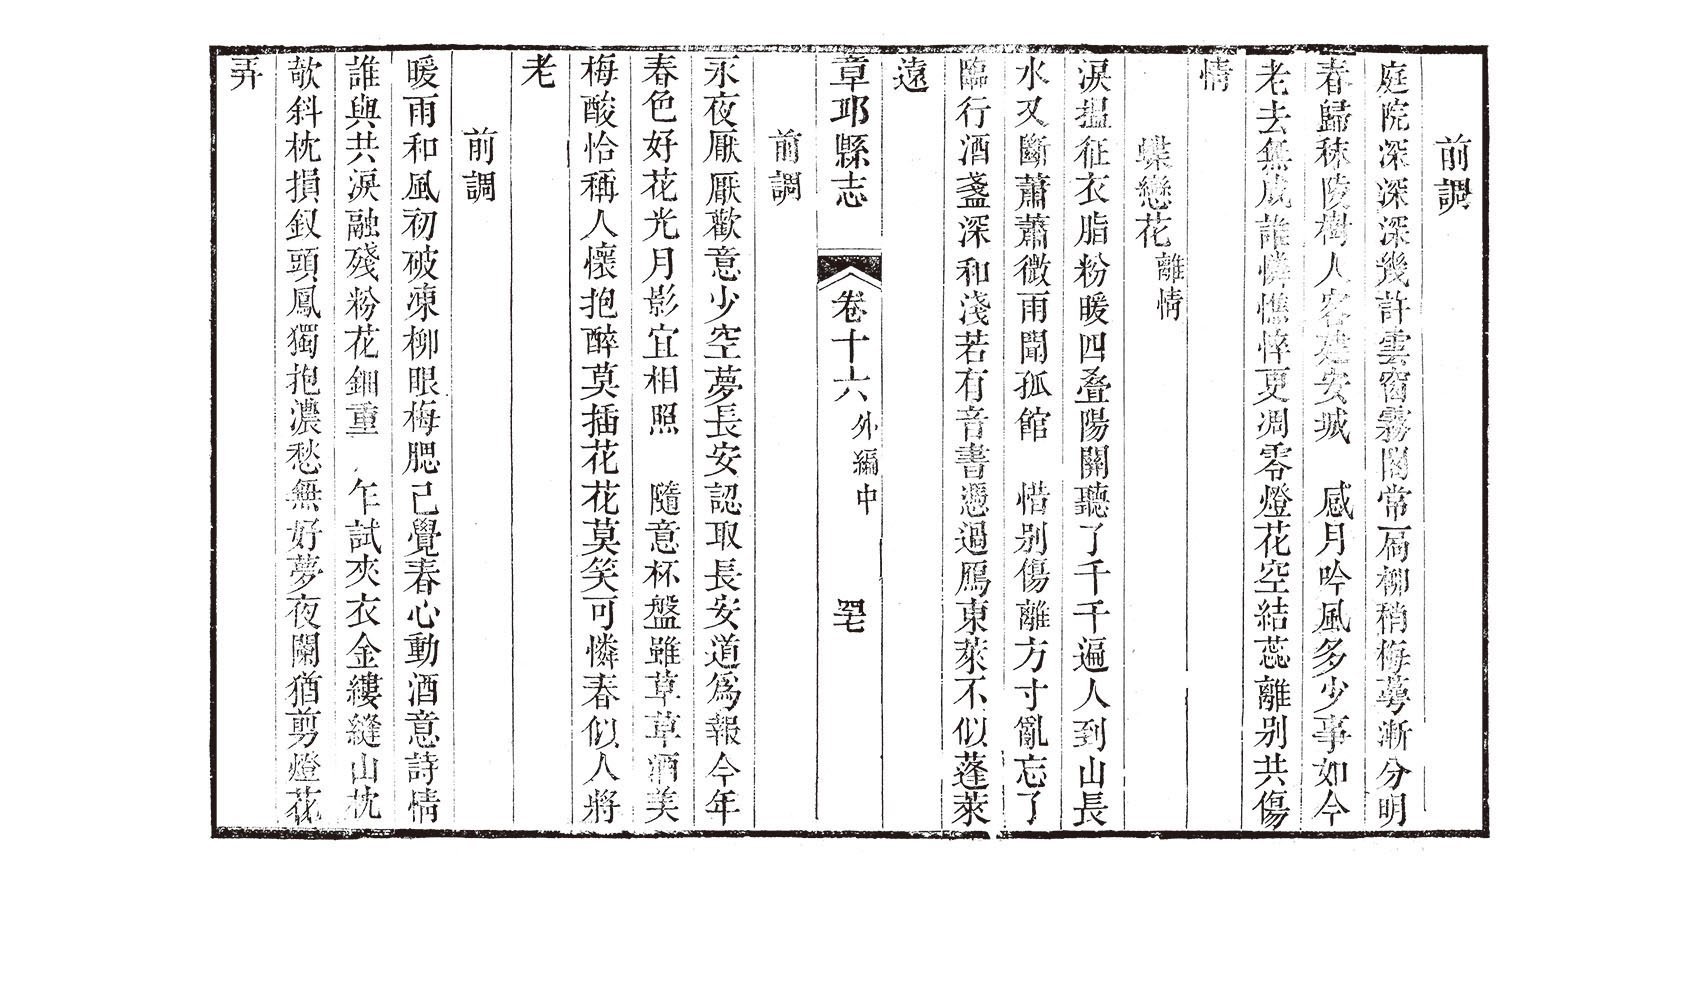 前調
庭院深深深幾許雲窗霧閣常扃柳稍梅萼漸分明
春歸秣陵樹人客建安城　感月吟風多少事如今
老去無成誰憐憔悴更凋零燈花空結蕊離別共傷
情
蝶戀花離情
淚搵征衣脂粉暖四叠陽關聽了千千遍人到山長
水又斷蕭蕭微雨聞孤館　惜别傷離方寸亂忘了
臨行酒盞深和淺若有音書憑過鴈東萊不似蓬萊
遠
章邱縣志　卷十六外編中　罕七
前調
永夜厭厭歡意少空夢長安認取長安道爲報今年
春色好花光月影宜相照　隨意杯盤雖草草酒美
梅酸恰稱人懷抱醉莫插花花莫笑可憐春似人將
老
前調
暖雨和風初破凍柳眼梅腮已覺春心動酒意詩情
誰與共淚融殘粉花鈿重　乍試夾衣金縷縫山枕
欹斜枕損釵頭鳳獨抱濃愁無好夢夜闌猶剪燈花
弄